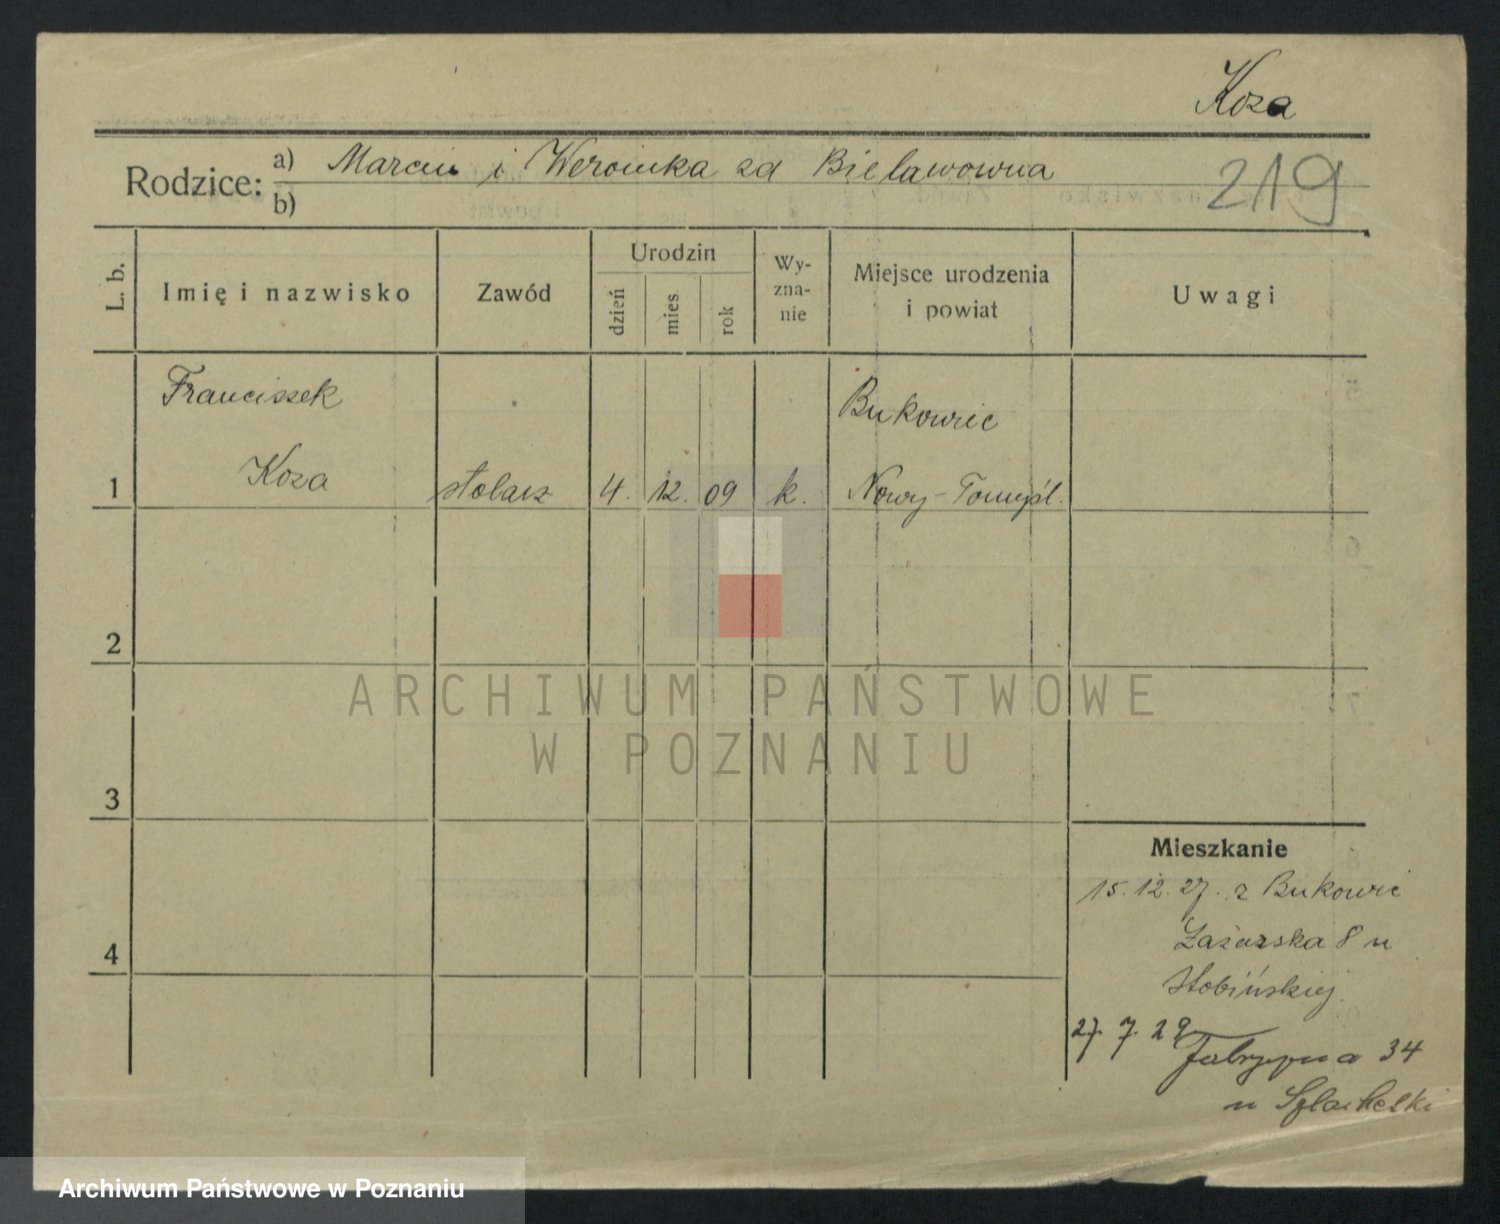 Koza
Rodzice: a) Marcin i Weronika zd Bielawowna
b)
219
L. b.
Imię i nazwisko
Zawód
Urodzin
dzień
mies
rok
Wy-
zna-
nie
Miejsce urodzenia
i powiat
Uwagi
Franciszek
Bukowiec
1 Koza stolarz 4. 12. 09 k. Nowy-Tomyśl.
2
ARCHIWUM PAŃSTWOWE
W POZNANIU
3
Mieszkanie
15.12.27. z Bukowiec
Łazarska 8 u
4
27 7 29
34
u
Archiwum Państwowe w Poznaniu